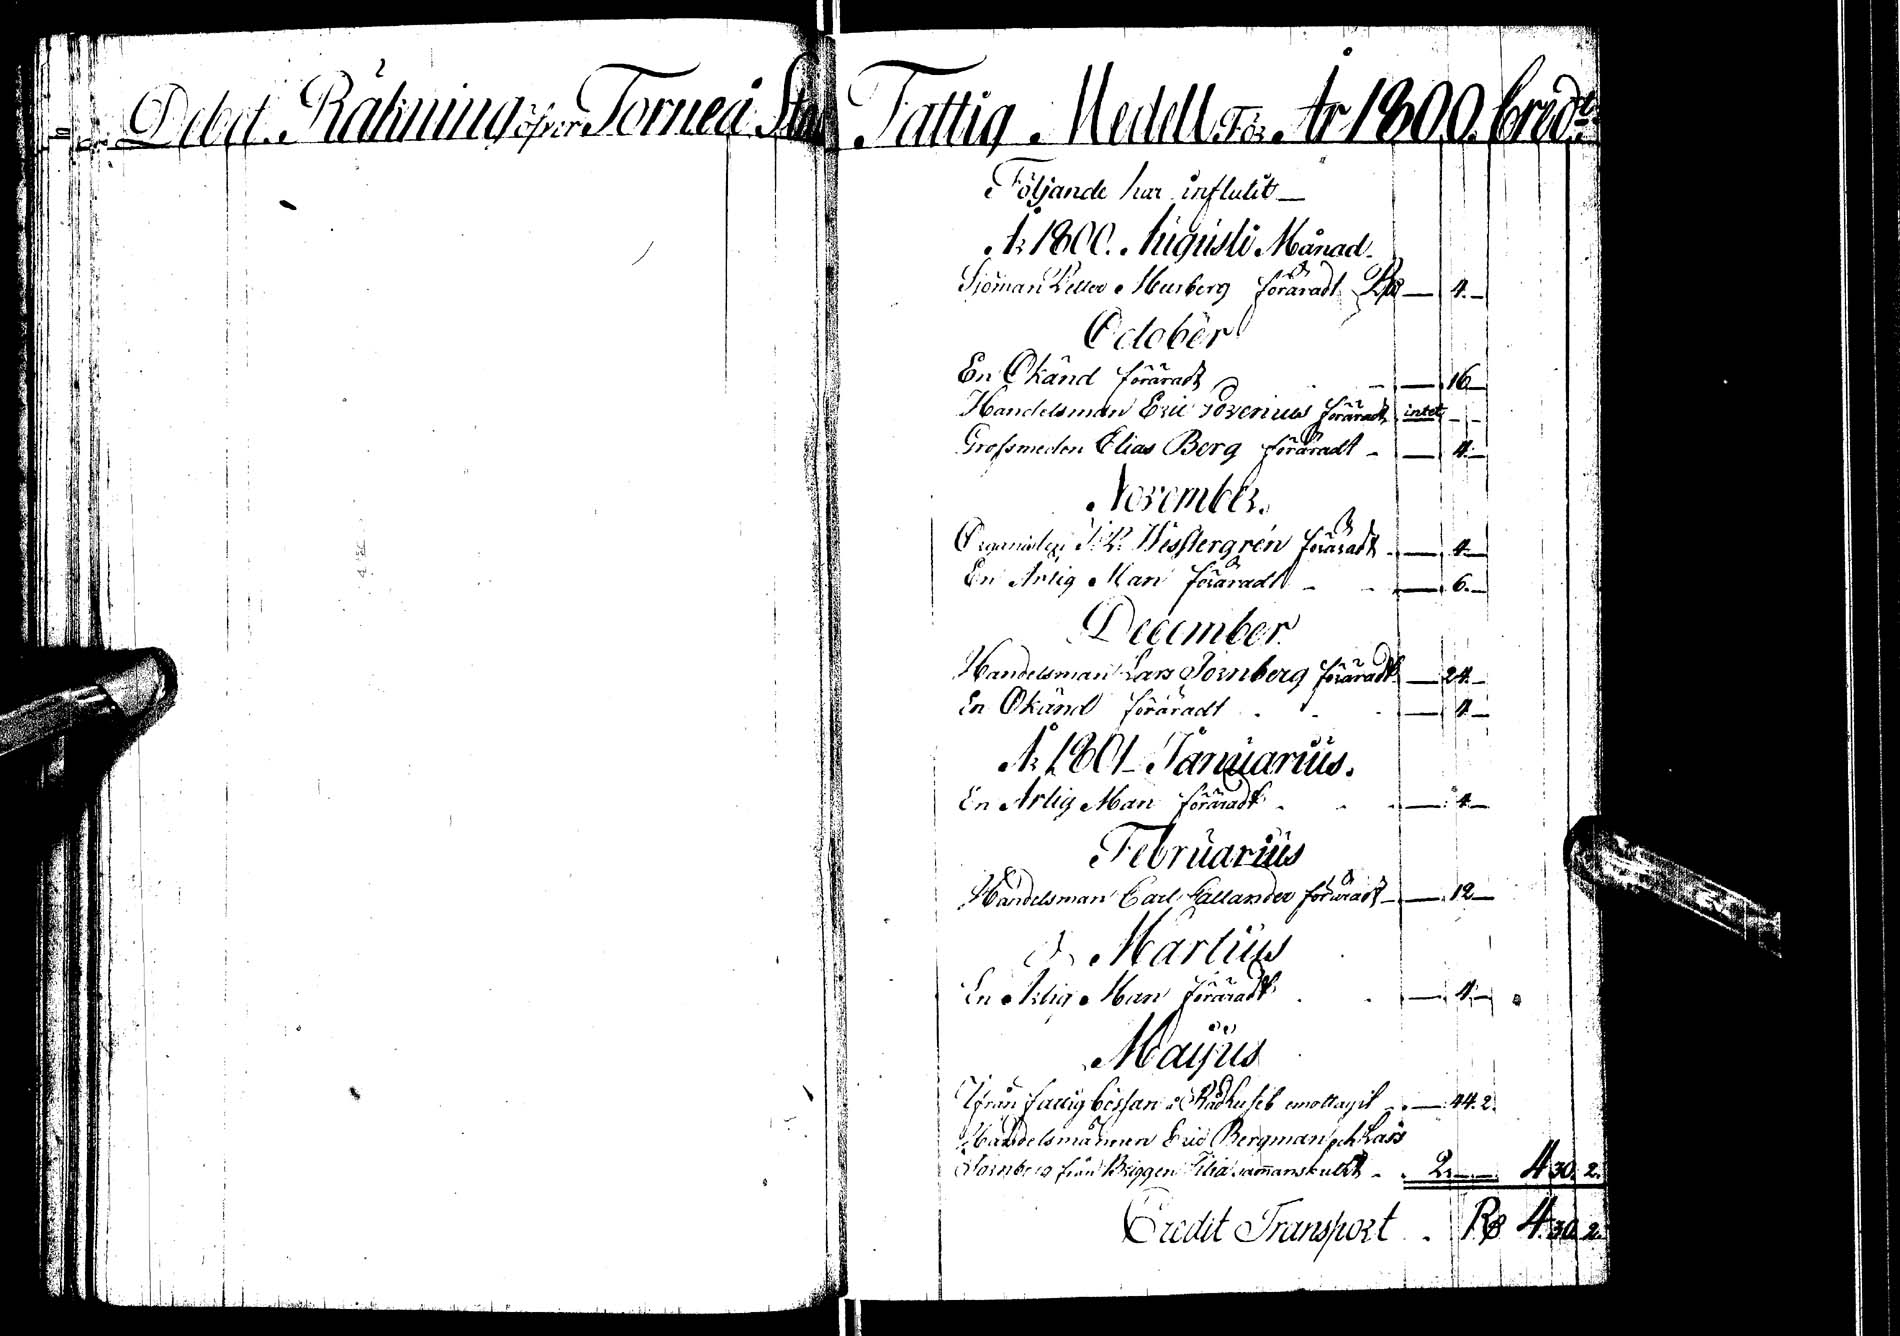 Debet. Räkning öfver Torneå Sta
Fattig Medell För År 1800. Credt
Följande har influtit —
År 1800. Augusti Månad.
Sjöman Petter Murberg föräradt Rd — 4. —
October
En Okänd föräradt — 16 —
Handelsman Eric föräradt intet — —
Grofsmeden Elias Berg föräradt — — 4. —
November.
Organisten Westergren föräradt — — 4. —
En Ärlig Man föräradt — — — 6. —
December
Handelsman Lars Tornberg föräradt — 24. —
En Okänd föräradt — 4 —
År 1801 — Januarius.
En Ärlig Man föräradt — — 4 —
Februarius
Handelsman Carl föräradt — — 12 —
Martius
En Ärlig Man föräradt — 4. —
Maijus
Ifrån fattig bössan å Rådhuset emottagit — — 44. 2.
Handelsmännen Eric Bergman och Lars
Tornberg från Briggen sammanskutit — 2. — — 4 30. 2.
Credit Transport . Rd 4. 30. 2.